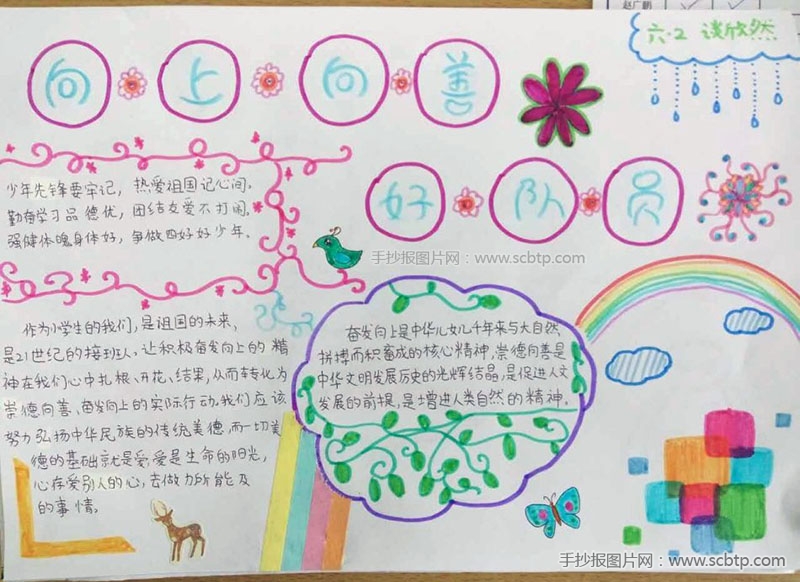 赵广鹏
六.2 谈欣然
向上向善
好队员
少年先锋要牢记，热爱祖国记心间。
勤奋学习品德优，团结友爱不打闹。
强健体魄身体好，争做四好好少年。
手抄报图片网：www.scbtp.com
作为小学生的我们，是祖国的未来，
是21世纪的接班人，让积极奋发向上的精
神在我们心中扎根、开花、结果，从而转化为
崇德向善、奋发向上的实际行动。我们应该
努力弘扬中华民族的传统美德，而一切美
德的基础就是爱，爱是生命的阳光，
心存爱别人的心，去做力所能及
的事情。
奋发向上是中华儿女几千年来与大自然
拼搏而积蓄成的核心精神，崇德向善是
中华文明发展历史的光辉结晶，是促进人文
发展的前提，是增进人类自然的精神。
手抄报图片网：www.scbtp.com